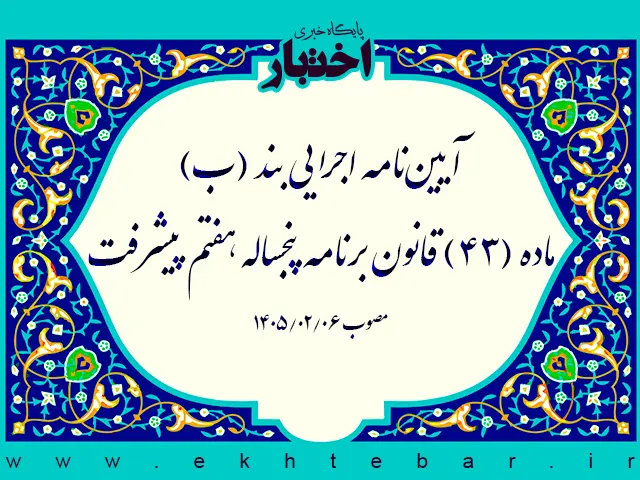 پایگاه خبری
اختبار
آیین‌نامه اجرایی بند (ب)
ماده (۴۳) قانون برنامه پنجساله هفتم پیشرفت
مصوب ۱۴۰۵/۰۲/۰۶
www.ekhtebar.ir